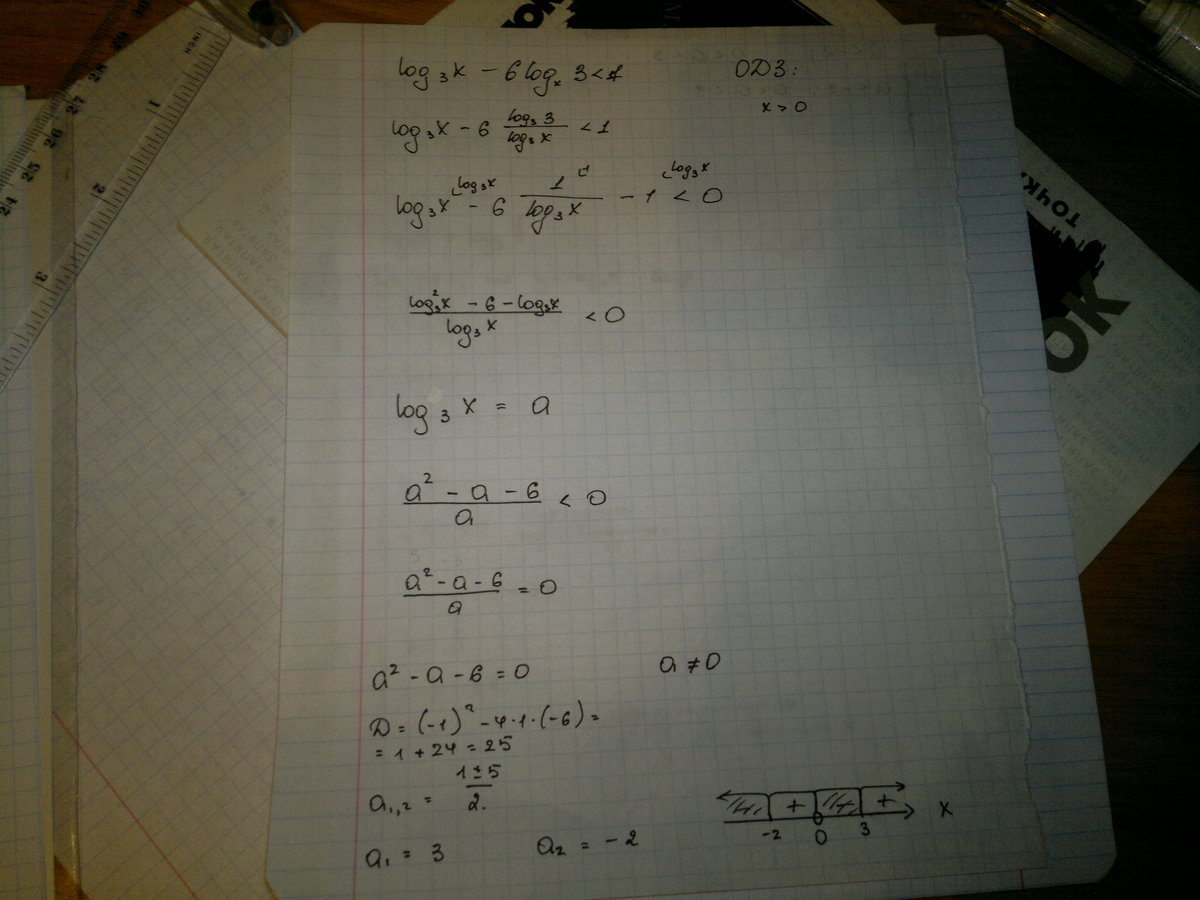 log₃x - 6 logₓ 3 < 1
ОДЗ:
x > 0
log₃x - 6 log₃3/log₃x < 1
log₃x - 6 1/log₃x - 1 < 0
(log₃²x - 6 - log₃x)/log₃x < 0
log₃x = a
(a² - a - 6)/a < 0
(a² - a - 6)/a = 0
a² - a - 6 = 0
a ≠ 0
D = (-1)² - 4·1·(-6) =
= 1 + 24 = 25
a₁,₂ = (1 ± 5)/2.
a₁ = 3
a₂ = -2
+ +
-2 0 3
x
INCH
1
2
3
24 25 26 27 28 29 30
ТОЧК
ОК